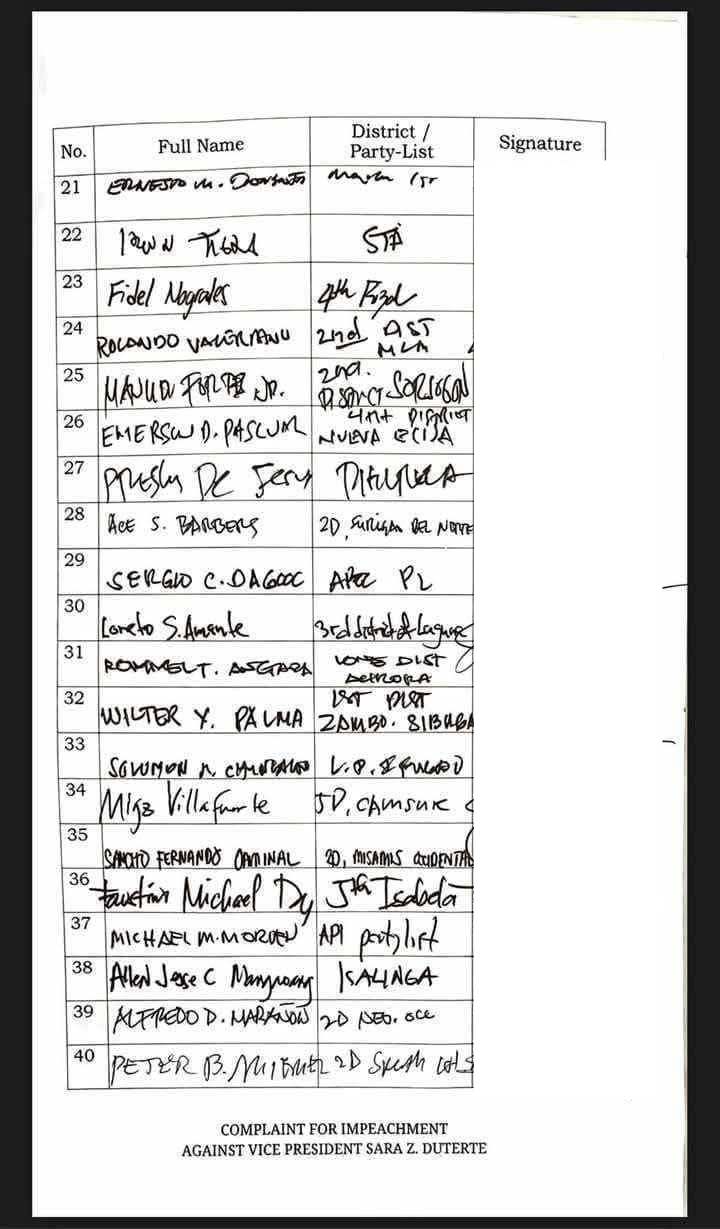 No. Full Name District / Party-List Signature
21 ERNESTO M. 1st
22
23 Fidel Nograles 4th Rizal
24 ROLANDO VALERIANO 2nd DIST MLA
25 MANUEL FORTES JR. 2nd. DISTRICT SORSOGON
26 EMERSON D. PASCUAL 4TH DISTRICT NUEVA ECIJA
27 De Jesus
28 ACE S. BARBERS 2D, SURIGAO DEL NORTE
29 SERGIO C. DAGOOC APEC PL
30 Loreto S. Amante 3rd district of Laguna
31 ROMMEL T. ANGARA LONE DIST AURORA
32 WILTER Y. PALMA 1ST DIST ZAMBO. SIBUGA
33 SOLOMON R. CHUNGALAO L.D. IFUGAO
34 Migz Villafuerte 5D, CAMSUR
35 SANCHO FERNANDO OAMINAL 2D, MISAMIS OCCIDENTAL
36 Faustino Michael Dy 5th Isabela
37 MICHAEL M. MORDEN API partylist
38 Allen Jesse C Mangaoang KALINGA
39 ALFREDO D. MARAÑON 2D NEG. OCC
40 PETER B. MIGUEL 2D South
COMPLAINT FOR IMPEACHMENT
AGAINST VICE PRESIDENT SARA Z. DUTERTE